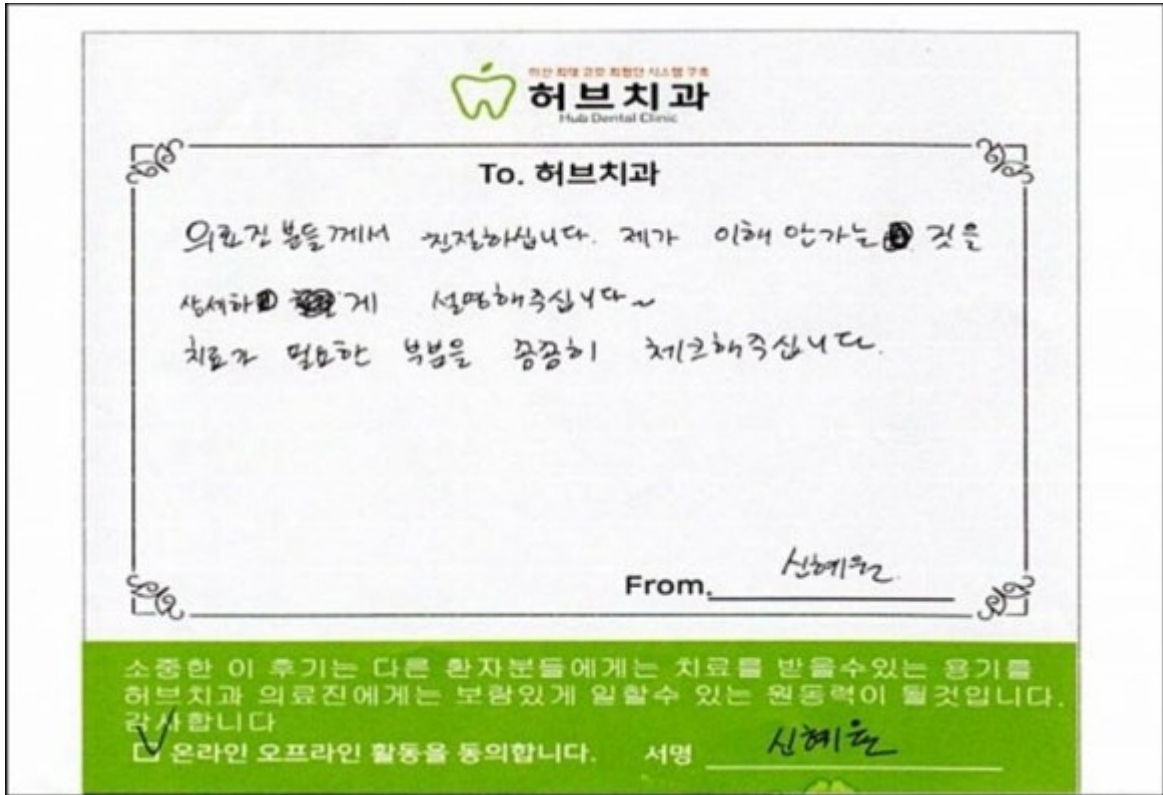 허브치과
Hub Dental Clinic
To. 허브치과
의료진 분들께서 친절하십니다. 제가 이해 안가는 것을
상세하게 설명해주십니다~
치료가 필요한 부분을 꼼꼼히 체크해주십니다.
From. 신혜원
소중한 이 후기는 다른 환자분들에게는 치료를 받을수있는 용기를
허브치과 의료진에게는 보람있게 일할수 있는 원동력이 될것입니다.
감사합니다
온라인 오프라인 활동을 동의합니다. 서명 신혜원